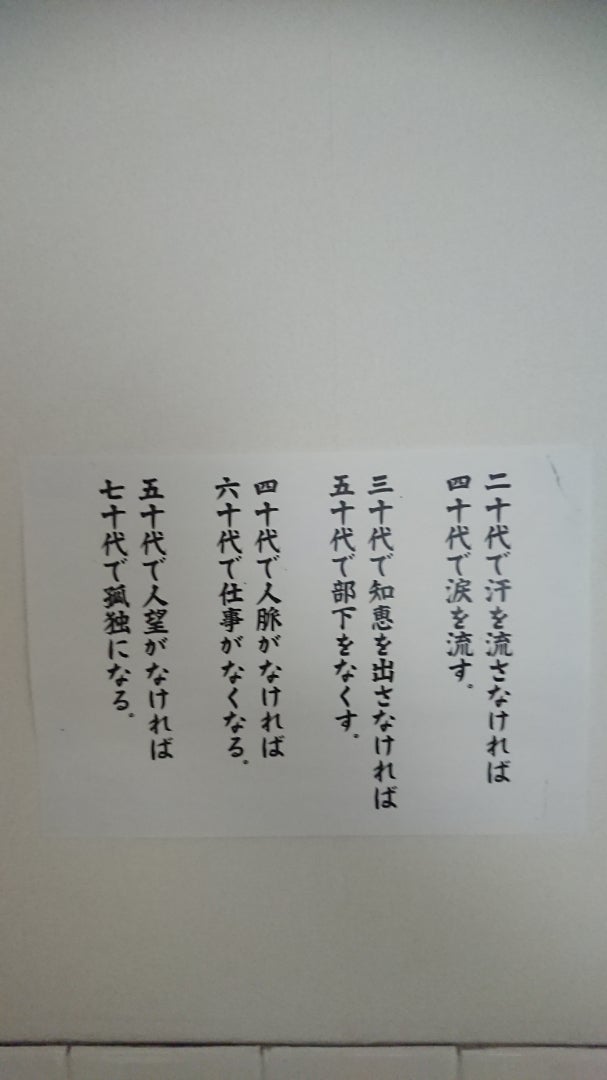 二十代で汗を流さなければ
四十代で涙を流す。
三十代で知恵を出さなければ
五十代で部下をなくす。
四十代で人脈がなければ
六十代で仕事がなくなる。
五十代で人望がなければ
七十代で孤独になる。